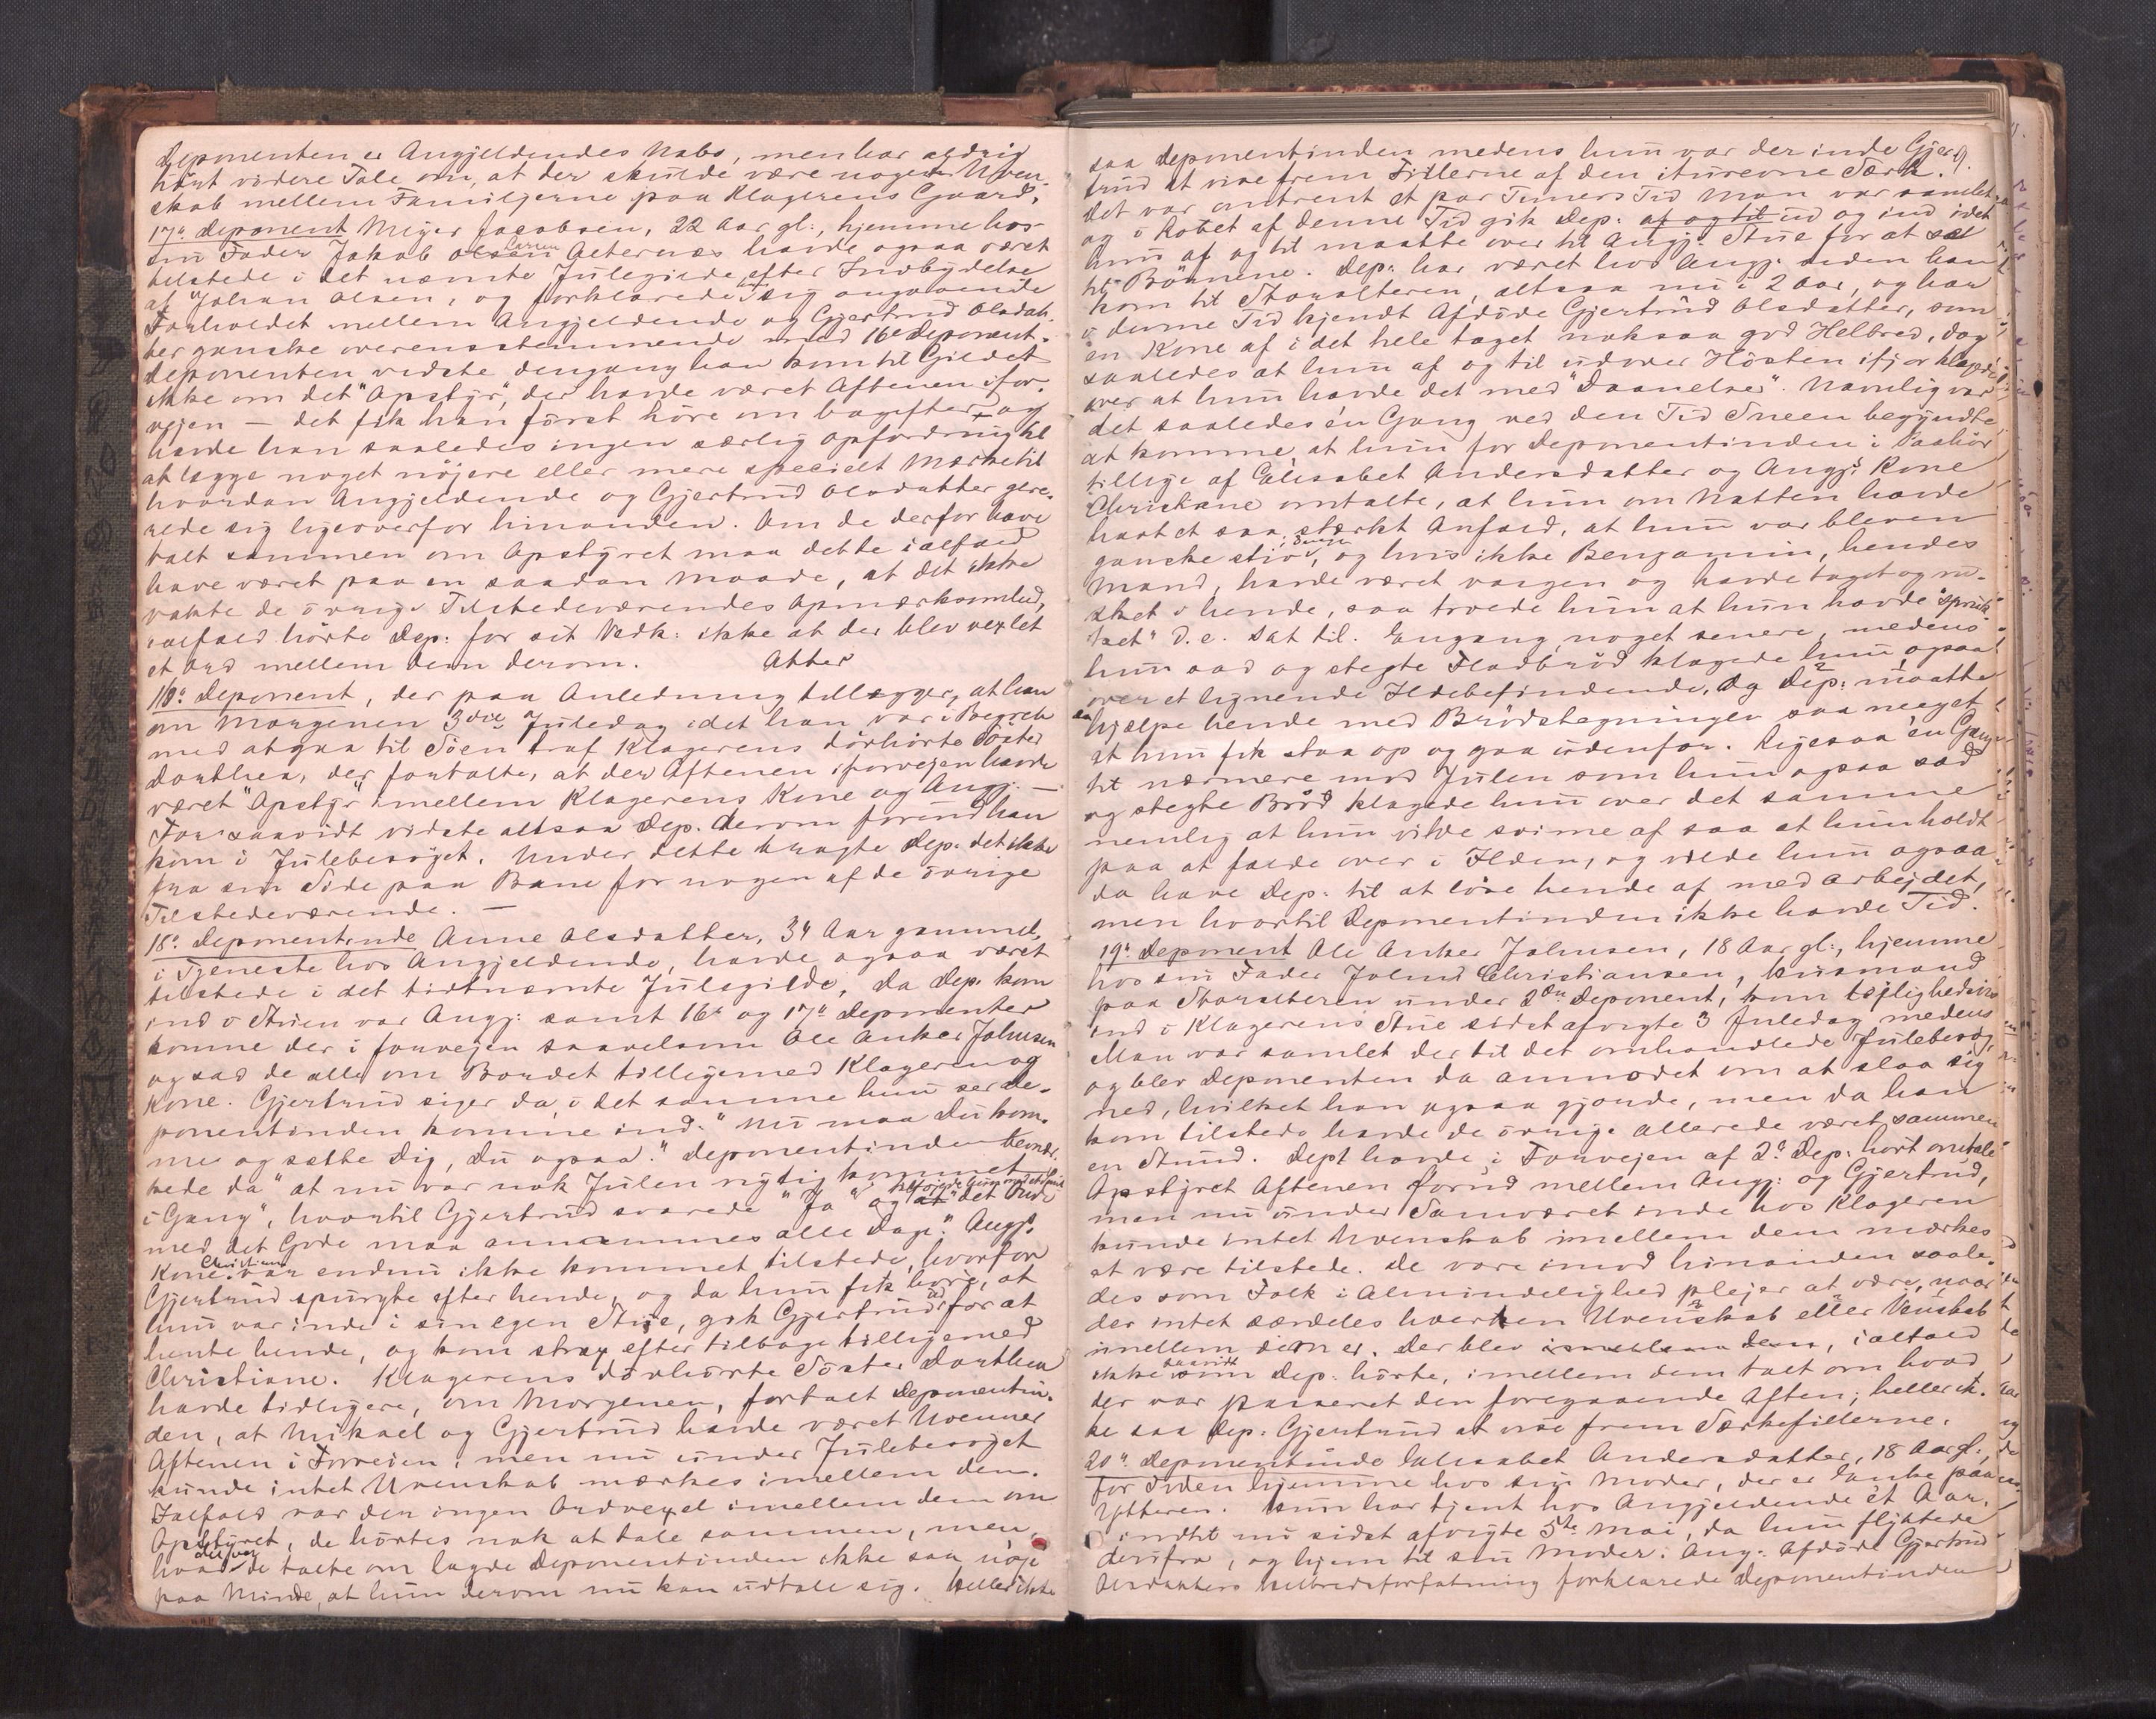 Deponenten er Angjeldendes Nabo, men har aldrig
hört videre Tale om, at der skulde være nogen Uven-
skab mellem Familjerne paa Klagerens Gaard.
17de Deponent Meyer Jacobsen, 22 Aar gl., hjemme hos
sin Fader Jakob Larsen havde ogsaa været
tilstede i det nævnte Julegilde efter Indbydelse
af Johan Olsen, og forklarede sig angaaende
Forholdet mellem Angjeldende og Gjertrud Olsdat-
ter ganske overensstemmende med 16de Deponent.
Deponenten vidste dengang han kom til Gildet
ikke om det "Opstyr", der havde været Aftenen ifor-
vejen — det fik han först höre om bagefter — og
havde han saaledes ingen særlig Opfordring til
at lægge noget nöjere eller mere specielt Mærke til
hvordan Angjeldende og Gjertrud Olsdatter gere-
rede sig ligeoverfor hinanden. Om de derfor have
talt sammen om Opstyret maa dette ialfald
have været paa en saadan Maade, at det ikke
vakte de övrige Tilstedeværendes Opmærksomhed,
ialfald hörte Dep: for sit Vedk: ikke at der blev vexlet
et Ord mellem dem derom. Atter
16de Deponent, der paa Anledning tillægger, at han
om Morgenen 3die Juledag idet han var i Begreb
med at gaa til Söen traf Klagerens dövhörte Söster
Dorthea, der fortalte, at der Aftenen iforvejen havde
været "Opstyr" mellem Klagerens Kone og Angj. —
For saavidt vidste altsaa Dep. derom förend han
kom i Julebesöget. Under dette bragte Dep. det ikke
fra sin Side paa Bane for nogen af de övrige
Tilstedeværende. —
18de Deponentinde Anne Olsdatter, 34 Aar gammel,
i Tjeneste hos Angjeldende, havde ogsaa været
tilstede i det tidtnævnte Julegilde. Da Dep. kom
ind i Stuen var Angj: samt 16de og 17de Deponenter
komne der i forvejen saavelsom Ole Anker Johnsen
og sad de alle om Bordet tilligemed Klageren og
Kone. Gjertrud siger da, i det samme hun ser De-
ponentinden komme ind: "Nu maa Du kom-
me og sætte Dig, Du ogsaa." Deponentinden bemær-
kede da "at nu var nok Julen rigtig kommet
i Gang", hvortil Gjertrud svarede "Ja" og "det Onde
med det Gode maa annammes alle Dage." Angjs
Kone Christiane var endnu ikke kommet tilstede, hvorfor
Gjertrud spurgte efter hende, og da hun fik höre, at
hun var inde i sin egen Stue, gik Gjertrud ud for at
hente hende, og kom strax efter tilbage tilligemed
Christiane. Klagerens dövhörte Söster Dorthea
havde tidligere, om Morgenen, fortalt Deponentin-
den, at Mikael og Gjertrud havde været Uvenner
Aftenen i Forvejen, men nu under Julebesöget
kunde intet Uvenskab mærkes imellem dem.
Ialfald var der ingen Ordvexel imellem dem om
Opstyret, de hörtes nok at tale sammen, men
hvad de talte om lagde Deponentinden ikke saa nöje
paa Minde, at hun derom nu kan udtale sig. Heller ikke
saa Deponentinden medens hun var der inde Gjer- 9.
trud at vise frem Fillerne af den iturevne Særk.
Det var omtrent et par Timers Tid Man var samlet
og i Löbet af denne Tid gik Dep: af og til ud og ind idet
hun af og til maatte over til Angj: Stue for at se
til Börnene. Dep: har været hos Angj. siden han
kom til Storalteren, altsaa nu i 2 Aar, og har
i denne Tid kjendt Afdöde Gjertrud Olsdatter, som
en Kone af i det hele taget noksaa god Helbred, dog
saaledes at hun af og til udover Hösten ifjor klagede
over at hun havde det med "Daanelser". Navnlig var
det saaledes én Gang ved den Tid Sneen begyndte
at komme, at hun for Deponentinden i Paahör
tillige af Elisabet Andersdatter og Angjs: Kone
Christiane omtalte, at hun om Natten havde
havt et saa stærkt Anfald, at hun var bleven
ganske stiv, og hvis ikke Benjamin, hendes
Mand, havde været vaagen og havde taget og ru-
sket i hende, saa troede hun at hun havde "spruk-
ket" d.e. sat til. Engang, noget senere, medens
hun sad og stegte Fladbröd klagede hun ogsaa
over et lignende Ildebefindende, og Dep: maatte
hjælpe hende med Brödstegningen saa meget
at hun fik staa op og gaa udenfor. Ligesaa én Gang
til nærmere mod Julen som hun ogsaa sad
og stegte Bröd klagede hun over det samme
nemlig at hun vilde svime af saa at hun holdt
paa at falde over i Ilden, og vilde hun ogsaa
da have Dep. til at löse hende af med Arbejdet,
men hvortil Deponentinden ikke havde Tid.
19de Deponent Ole Anker Johnsen, 18 Aar gl., hjemme
hos sin Fader John Christiansen, Husmand
paa Storalteren under 2den Deponent, kom lejlighedsvis
ind i Klagerens Stue sidst afvigte 3 Juledag medens
Man var samlet der til det omhandlede Julebesög,
og blev Deponenten da anmodet om at slaa sig
ned, hvilket han ogsaa gjorde, men da han
kom tilstede havde de övrige allerede været sammen
en Stund. Dept havde i Forvejen af 2de Dep. hört omtale
Opstyret Aftenen forud mellem Angj: og Gjertrud,
men nu under Samværet inde hos Klageren
kunde intet Uvenskab imellem dem mærkes
at være tilstede. De vare imod hinanden saale-
des som Folk i Almindelighed plejer at være, naar
der intet særdeles hverken Uvenskab eller Venskab
imellem dem er. Der blev imellem dem, ialfald
ikke saavidt Dep: hörte, imellem dem talt om hvad
der var passeret den foregaaende Aften; heller ik-
ke saa Dep. Gjertrud at vise frem Særkefillerne.
20de Deponentinde Elisabet Andersdatter, 18 Aar gl.,
for Tiden hjemme hos sin Moder, der er Enke paa
Ytteren. Hun har tjent hos Angjeldende ét Aar,
indtil nu sidst afvigte 5te Mai, da hun flyttede
derifra, og hjem til sin Moder. Ang. Afdöde Gjertrud
Olsdatters Helbredsforfatning forklarede Deponentinden